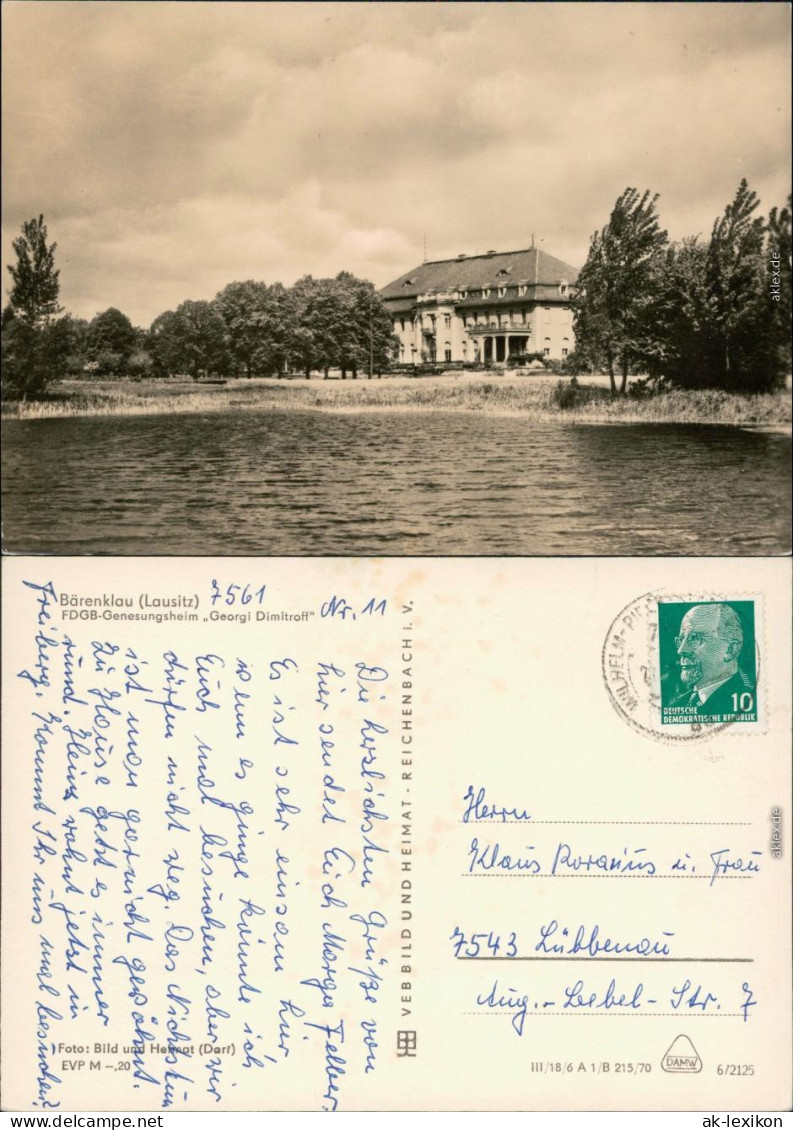 Bärenklau (Lausitz) 7561
FDGB-Genesungsheim „Georgi Dimitroff" Nr. 11
Die herzlichsten Grüße von
hier sendet Euch Marga Felber.
Es ist sehr einsam hier
wenn es ginge könnte ich
Euch mal besuchen, aber wir
dürfen nicht weg. Das Nichtstun
ist man garnicht gewöhnt.
Zu Hause geht es immer
rund. Heinz wohnt jetzt in
Freiberg. Kommt Ihr uns mal besuchen?
Foto: Bild und Heimat (Darr)
EVP M –,20
VEB BILD UND HEIMAT - REICHENBACH i. V.
WILHELM-PIE
DEUTSCHE
DEMOKRATISCHE REPUBLIK
10
Herrn
Klaus u. Frau
7543 Lübbenau
Aug.-Bebel-Str. 7
III/18/6 A 1/B 215/70
DAMW
6/2125
aklexikon.de
aklexikon.de
www.delcampe.net
ak-lexikon